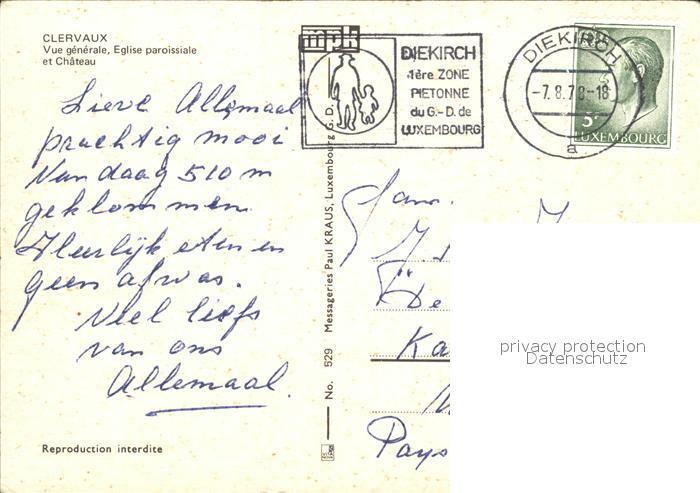 CLERVAUX
Vue générale, Eglise paroissiale
et Château
Lieve Allemaal
prachtig mooi
Vandaag 510 m
geklommen
Heerlijk eten en
geen afwas.
Veel liefs
van ons
Allemaal.
Reproduction interdite
No. 529 Messageries Paul KRAUS, Luxembourg G. D.
mpk
DIEKIRCH
1ère ZONE
PIETONNE
du G.-D. de
LUXEMBOURG
DIEKIRCH
-7.8.78-18
a
5F
LUXEMBOURG
Fam.
De
Ka
Pays
privacy protection
Datenschutz